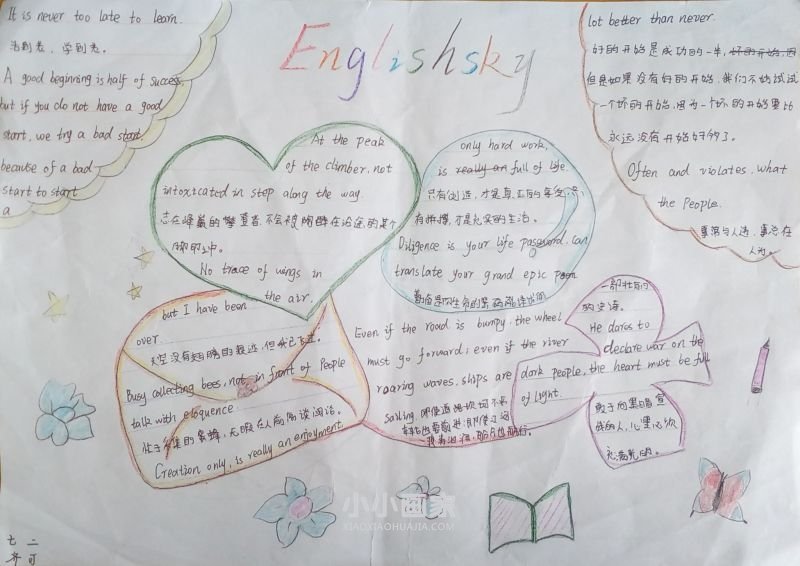 Englishsky
It is never too late to learn.
活到老，学到老。
A good beginning is half of success,
but if you do not have a good
start, we try a bad start,
because of a bad
start to start
a
lot better than never.
好的开始是成功的一半，好的开始，因
但是如果没有好的开始，我们不妨试试
一个坏的开始，因为一个坏的开始要比
永远没有开始好得了。
Often and violates, what
the People.
事常与人违，事总在
人为。
At the peak
of the climber, not
intoxicated in step along the way.
志在峰巅的攀登者，不会被陶醉在沿途的某个
脚印中。
No trace of wings in
the air,
but I have been
over
天空没有翅膀的痕迹，但我已飞过。
Busy collecting bees, not in front of People
talk with eloquence
忙于采集的蜜蜂，无暇在人前高谈阔论。
Creation only, is really an enjoyment,
only hard work,
is really an full of life.
只有创造，才是真正的享受，只
有拼搏，才是充实的生活。
Diligence is your life password, can
translate your grand epic poem.
勤奋是你生命的密码，能译出你
一部壮丽
的史诗。
Even if the road is bumpy, the wheel
must go forward; even if the river
roaring waves, ships are
sailing.
He dares to
declare war on the
dark people, the heart must be full
of light.
敢于向黑暗宣
战的人，心里必须
充满光明。
小小画家
XIAOXIAOHUAJIA.COM
七 二
齐 可